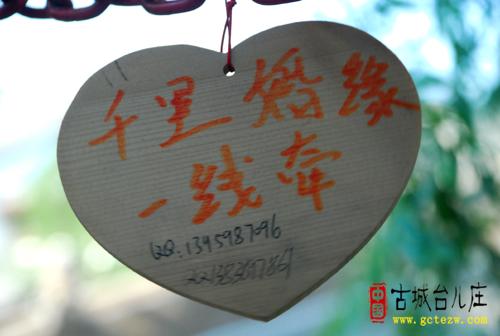 千里婚缘
一线牵
QQ: 1395987096
中国
古城台儿庄
www.gctezw.com